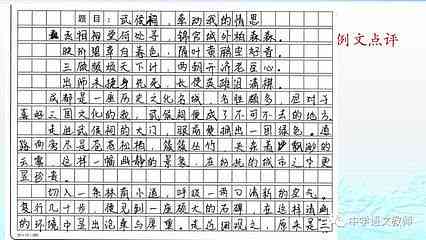 题目：武侯祠，牵动我的情思
丞相祠堂何处寻，锦官城外柏森森。
映阶碧草自春色，隔叶黄鹂空好音。
三顾频烦天下计，两朝开济老臣心。
出师未捷身先死，长使英雄泪满襟。
成都是一座历史文化名城，名胜颇多，但对于
喜好三国文化的我，武侯祠便成了不可不去的地方。
走进武侯祠的大门，眼前便拥出一团绿色。道
路两旁尽是苍苍松柏，簇簇丛竹，夹杂着飘渺的
云雾，这样一幅幽静的景象，在纷扰的城市之中更
显珍贵。
切入一条林荫小道，呼吸一两口清新的空气。
复行几十步，便见到一座硕大的石碑，在这样清幽
的环境中显出沧桑与厚重。走近细观之，原来是三
例文点评
中学语文教师